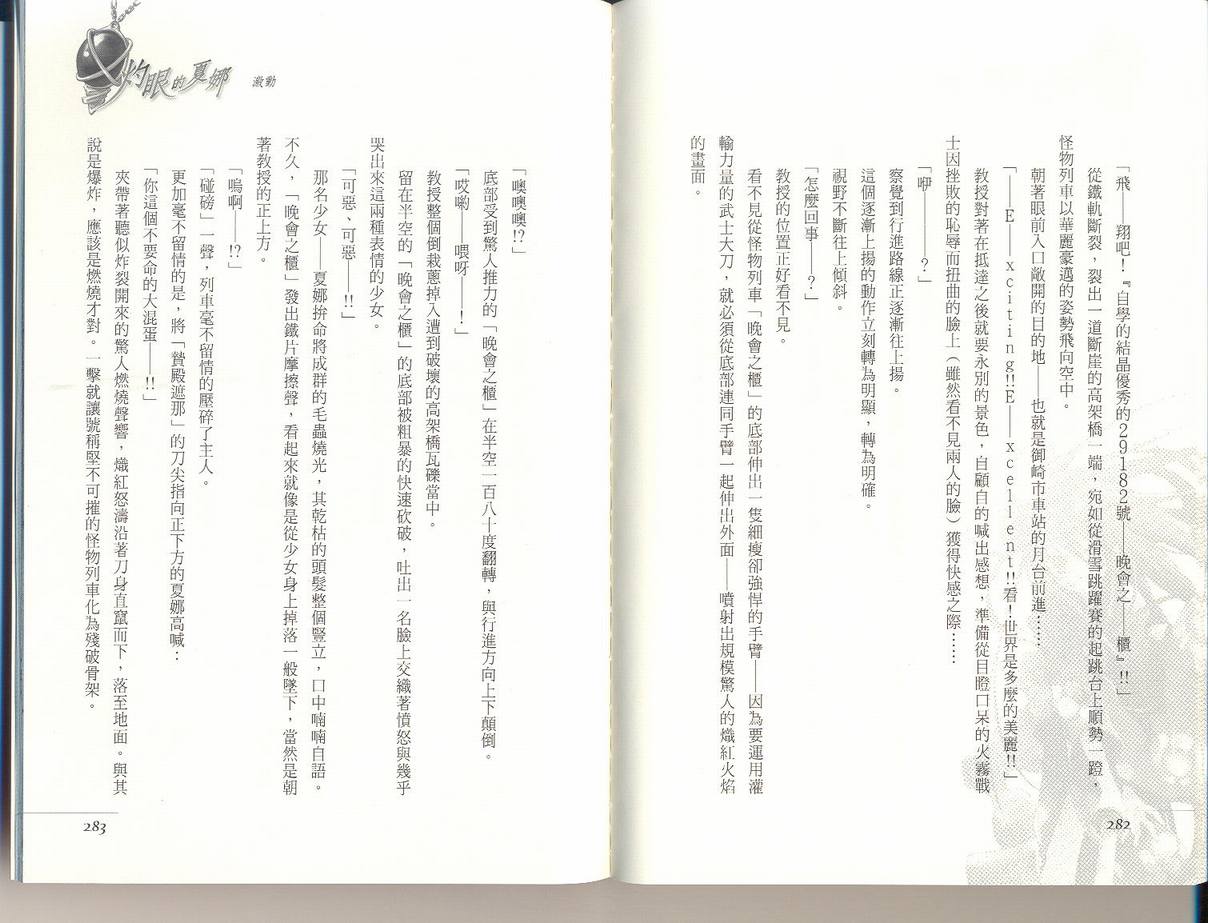 「飛——翔吧！『自學的結晶優秀的29182號——晚會之——櫃』!!」
從鐵軌斷裂，裂出一道斷崖的高架橋一端，宛如從滑雪跳躍賽的起跳台上順勢一蹬，
怪物列車以華麗豪邁的姿勢飛向空中。
朝著眼前入口敞開的目的地——　也就是御崎市車站的月台前進……
「——E——xciting!!E——xcellent!!看！世界是多麼的美麗!!」
教授對著在抵達之後就要永別的景色，自顧自的喊出感想，準備從目瞪口呆的火霧戰
士因挫敗的恥辱而扭曲的臉上（雖然看不見兩人的臉）獲得快感之際……
「咿————?」
察覺到行進路線正逐漸往上揚。
這個逐漸上揚的動作立刻轉為明顯，轉為明確。
視野不斷往上傾斜。
「怎麼回事——?」
教授的位置正好看不見。
看不見從怪物列車「晚會之櫃」的底部伸出一隻細瘦卻強悍的手臂——因為要運用灌
輸力量的武士大刀，就必須從底部連同手臂一起伸出外面——噴射出規模驚人的熾紅火焰
的畫面。
282
灼眼的夏娜　激動
「噢噢噢!?」
底部受到驚人推力的「晚會之櫃」在半空一百八十度翻轉，與行進方向上下顛倒。
「哎喲——　喂呀——！」
教授整個倒栽蔥掉入遭到破壞的高架橋瓦礫當中。
留在半空的「晚會之櫃」的底部被粗暴的快速砍破，吐出一名臉上交織著憤怒與幾乎
哭出來這兩種表情的少女。
「可惡、可惡——!!」
那名少女——夏娜拚命將成群的毛蟲燒光，其乾枯的頭髮整個豎立，口中喃喃自語。
不久，「晚會之櫃」發出鐵片摩擦聲，看起來就像是從少女身上掉落一般墜下，當然是朝
著教授的正上方。
「嗚啊——!?」
「碰磅」一聲，列車毫不留情的壓碎了主人。
更加毫不留情的是，將「贄殿遮那」的刀尖指向正下方的夏娜高喊：
「你這個不要命的大混蛋——!!」
夾帶著聽似炸裂開來的驚人燃燒聲響，熾紅怒濤沿著刀身直竄而下，落至地面。與其
說是爆炸，應該是燃燒才對。一擊就讓號稱堅不可摧的怪物列車化為殘破骨架。
283